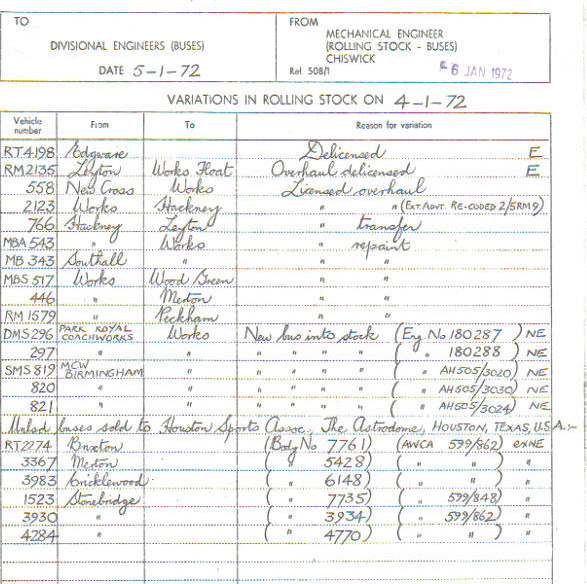 TO FROM
DIVISIONAL ENGINEERS (BUSES) MECHANICAL ENGINEER
(ROLLING STOCK - BUSES)
CHISWICK
DATE 5-1-72 Ref. 508/1 6 JAN 1972
VARIATIONS IN ROLLING STOCK ON 4-1-72
Vehicle number From To Reason for variation
RT4198 Edgware Delicensed E
RM2135 Leyton Works Float Overhaul delicensed E
558 New Cross Works Licensed overhaul
2123 Works Hackney " " (Ext. Advt. Re-coded 2/5RM9)
766 Hackney Leyton " transfer
MBA543 " Works " repaint
MB 343 Southall " " "
MBS 517 Works Wood Green " "
446 " Merton " "
RM 1579 " Peckham " "
DMS296 PARK ROYAL COACHWORKS Works New bus into stock (Eng No 180287) NE
297 " " " " " " ( " 180288 ) NE
SMS 819 MCW BIRMINGHAM " " " " " ( " AH505/3020) NE
820 " " " " " " ( " AH505/3030) NE
821 " " " " " " ( " AH505/3024) NE
buses sold to Houston Sports Assoc., The Astrodome, HOUSTON, TEXAS, U.S.A:-
RT2274 Brixton (Body No 7761) (AWCA 599/862) exNE
3367 Merton ( " 5428) ( " " ) "
3983 Cricklewood ( " 6148) ( " " ) "
1523 Stonebridge ( " 7735) ( " 599/848) "
3930 " ( " 3934) ( " 599/862) "
4284 " ( " 4770) ( " " ) "